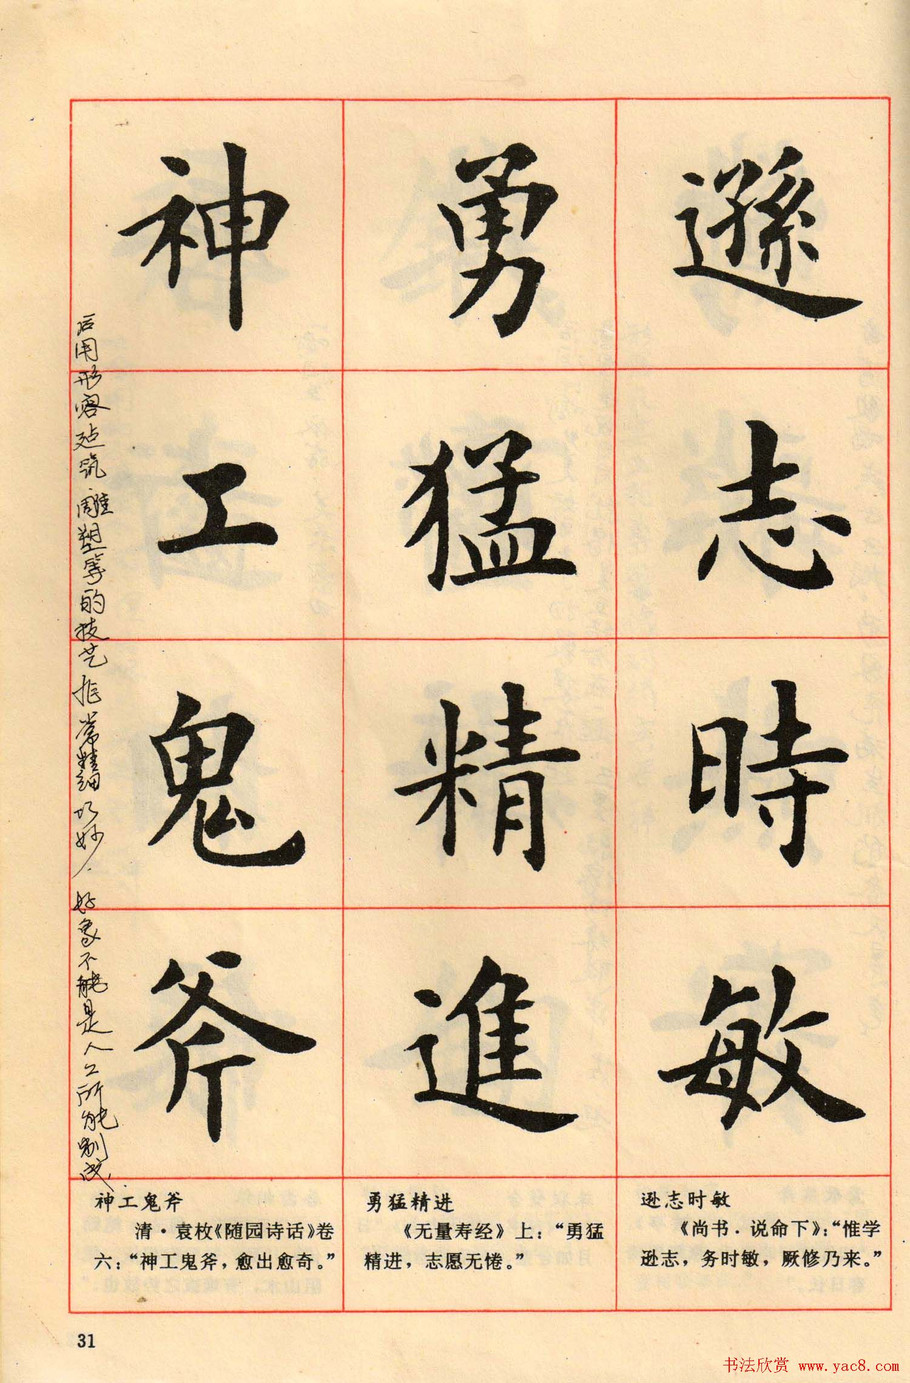 遜志時敏
勇猛精進
神工鬼斧
后用形容建筑雕塑等的技艺非常精细巧妙.好象不能是人工所能制成.
逊志时敏
《尚书·说命下》:“惟学
逊志,务时敏,厥修乃来。”
勇猛精进
《无量寿经》上:“勇猛
精进,志愿无惓。”
神工鬼斧
清·袁枚《随园诗话》卷
六:“神工鬼斧,愈出愈奇。”
31
书法欣赏 www.yac8.com